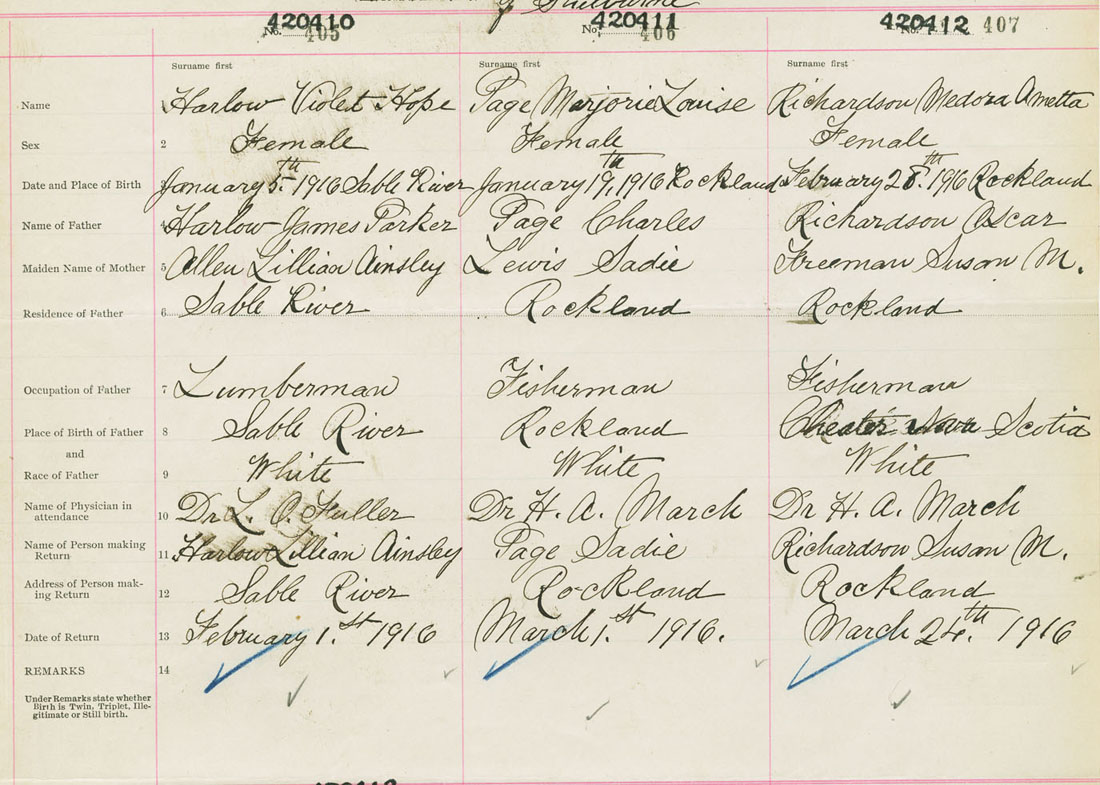 of Shelburne
420410 420411 420412
No. 405 No. 406 No. 407
Surname first Surname first Surname first
Name Harlow Violet Hope Page Marjorie Louise Richardson Medora Ametta
Sex 2 Female Female Female
Date and Place of Birth January 5.th 1916 Sable River January 19,th 1916 Rockland February 28.th 1916 Rockland
Name of Father Harlow James Parker Page Charles Richardson Oscar
Maiden Name of Mother 5 Allen Lillian Ainsley Lewis Sadie Freeman Susan M.
Residence of Father 6 Sable River Rockland Rockland
Occupation of Father 7 Lumberman Fisherman Fisherman
Place of Birth of Father 8 Sable River Rockland Chester Nova Scotia
and
Race of Father 9 White White White
Name of Physician in
attendance 10 Dr L. O. Fuller Dr H. A. March Dr H. A. March
Name of Person making
Return 11 Harlow Lillian Ainsley Page Sadie Richardson Susan M.
Address of Person mak-
ing Return 12 Sable River Rockland Rockland
Date of Return 13 February 1.st 1916 March 1.st 1916. March 24.th 1916
REMARKS 14
Under Remarks state whether
Birth is Twin, Triplet, Ille-
gitimate or Still birth.